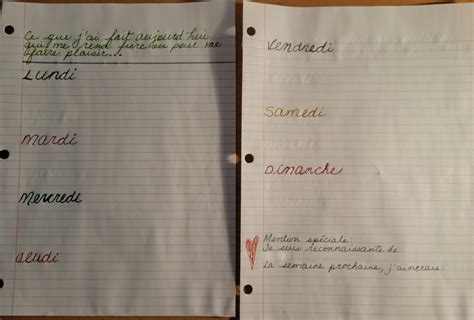 Ce que j'ai fait aujourd'hui
qui me rend fière ou pour me
faire plaisir...
Lundi
Mardi
Mercredi
Jeudi
Vendredi
Samedi
Dimanche
Mention spéciale:
Je suis reconnaissante de:
La semaine prochaine, j'aimerais: